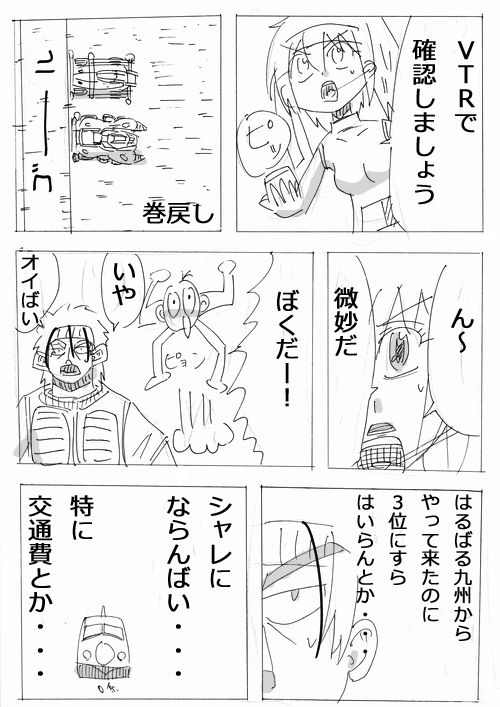 VTRで
確認しましょう
ピッ
ゴール
巻戻し
ん〜
微妙だ
ぼくだー！
いや
オイばい
はるばる九州から
やって来たのに
3位にすら
はいらんとか・・・
シャレに
ならんばい・・・・
特に
交通費とか・・・・